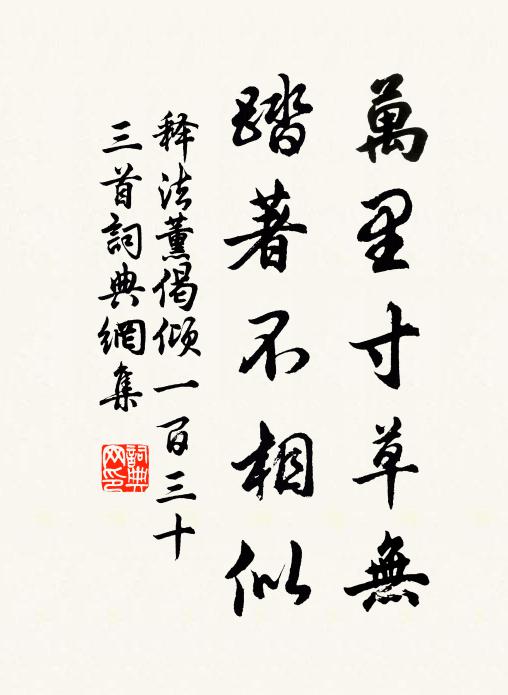 萬里寸草無
踏著不相似
释法薰偈倾一百三十
三首詞典網集
詞典网印